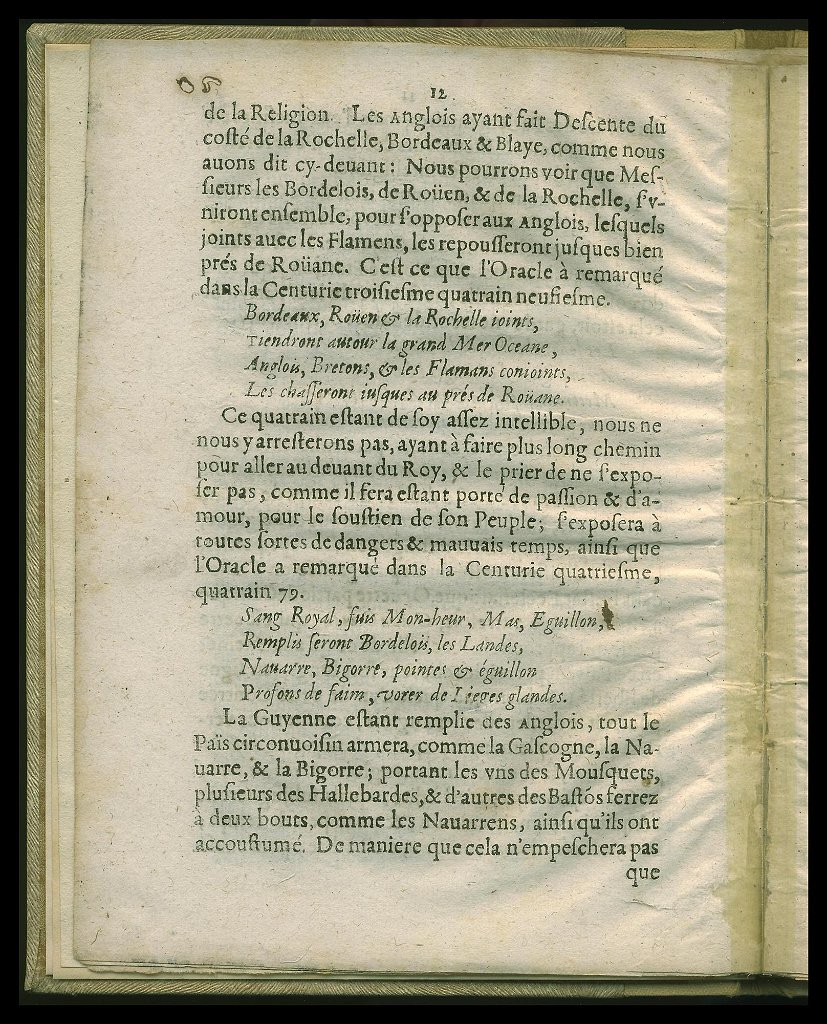 12
de la Religion. Les Anglois ayant fait Deſcente du
coſté de la Rochelle, Bordeaux & Blaye, comme nous
auons dit cy-deuant: Nous pourrons voir que Meſ-
ſieurs les Bordelois, de Roüen, & de la Rochelle, ſ'v-
niront enſemble, pour ſ'oppoſer aux Anglois, leſquels
joints auec les Flamens, les repouſſeront juſques bien
prés de Roüane. C'eſt ce que l'Oracle à remarqué
dans la Centurie troiſieſme quatrain neufieſme.
Bordeaux, Roüen & la Rochelle ioints,
Tiendront autour la grand Mer Oceane,
Anglois, Bretons, & les Flamans conioints,
Les chaſſeront iuſques au prés de Roüane.
Ce quatrain eſtant de ſoy aſſez intellible, nous ne
nous y arreſterons pas, ayant à faire plus long chemin
pour aller au deuant du Roy, & le prier de ne ſ'expo-
ſer pas, comme il fera eſtant porté de paſſion & d'a-
mour, pour le ſouſtien de ſon Peuple; ſ'expoſera à
toutes ſortes de dangers & mauuais temps, ainſi que
l'Oracle a remarqué dans la Centurie quatrieſme,
quatrain 79.
Sang Royal, fuis Mon-heur, Mas, Eguillon,
Remplis ſeront Bordelois, les Landes,
Nauarre, Bigorre, pointes & éguillon
Profons de faim, vorer de Lieges glandes.
La Guyenne eſtant remplie des Anglois, tout le
Païs circonuoiſin armera, comme la Gaſcogne, la Na-
uarre, & la Bigorre; portant les vns des Mouſquets,
pluſieurs des Hallebardes, & d'autres des Baſtõs ferrez
à deux bouts, comme les Nauarrens, ainſi qu'ils ont
accouſtumé. De maniere que cela n'empeſchera pas
que